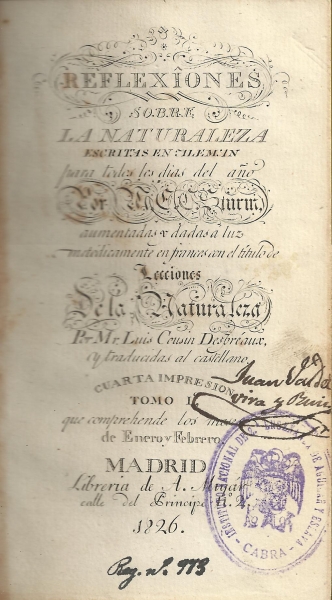 REFLEXIONES
SOBRE
LA NATURALEZA
ESCRITAS EN ALEMAN
para todos los dias del año
Por M. C. C. Sturm,
aumentadas y dadas a luz
metódicamente en frances con el título de
Lecciones
De la Naturaleza
Pr. Mr. Luis Cousin Desbreaux,
y traducidas al castellano
CUARTA IMPRESION
TOMO I
que comprehende los
de Enero y Febrero
MADRID
Libreria de A.
calle del Principe N.º 2
1826.
Juan
y
INSTITUTO NACIONAL DE
DE AGUILAR Y ESLAVA
CABRA
Reg. nº. 993